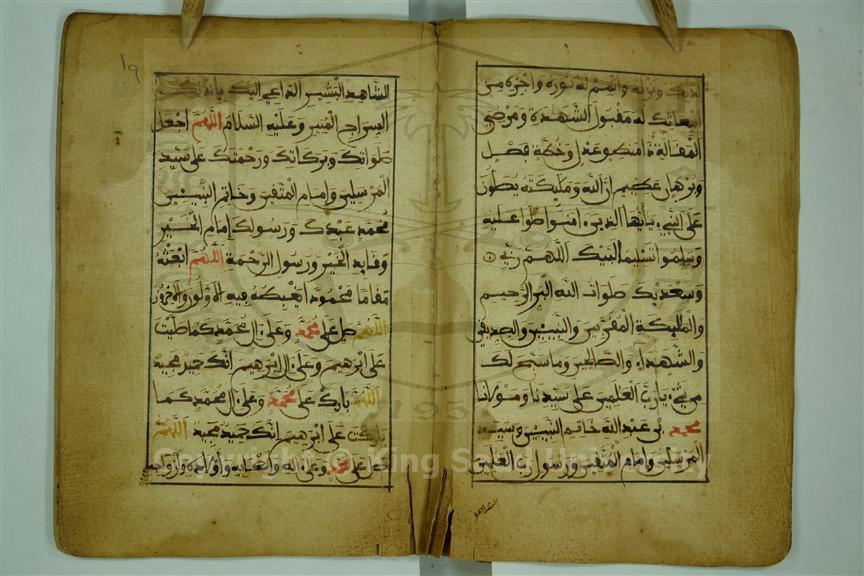 لديك ونزله واتمم له نوره واجزه من
ابتعاثك له مقبول الشهدة ومرضي
المقالة ذا منطق عدل وخطة فصل
وبرهان عظيم ان الله ومليكته يصلون
على النبي يايها الذين امنوا صلوا عليه
وسلموا تسليما لبيك اللهم ربي
وسعديك صلوات الله البر الرحيم
والمليكة المقربين والنبيين والصديقين
والشهداء والصالحين وما سبح لك
من شيء يارب العلمين على سيدنا ومولانا
محمد بن عبد الله خاتم النبيين وسيد
المرسلين وامام المتقين ورسول رب العلمين
الشاهد
١٩
الشاهد البشير الداعي اليك باذنك
السراج المنير وعليه السلام اللهم اجعل
صلواتك وبركاتك ورحمتك على سيد
المرسلين وامام المتقين وخاتم النبيين
محمد عبدك ورسولك امام الخير
وقايد الخير ورسول الرحمة اللهم ابعثه
مقاما محمودا يغبطه فيه الاولون والاخرون
اللهم صل على محمد وعلى ال محمد كما صليت
على ابرهيم وعلى ال ابرهيم انك حميد مجيد
اللهم بارك على محمد وعلى ال محمد كما
باركت على ابرهيم انك حميد مجيد اللهم
صل على محمد وعلى اله واصحابه واولاده وازواجه
Copyright © King Saud University
1957